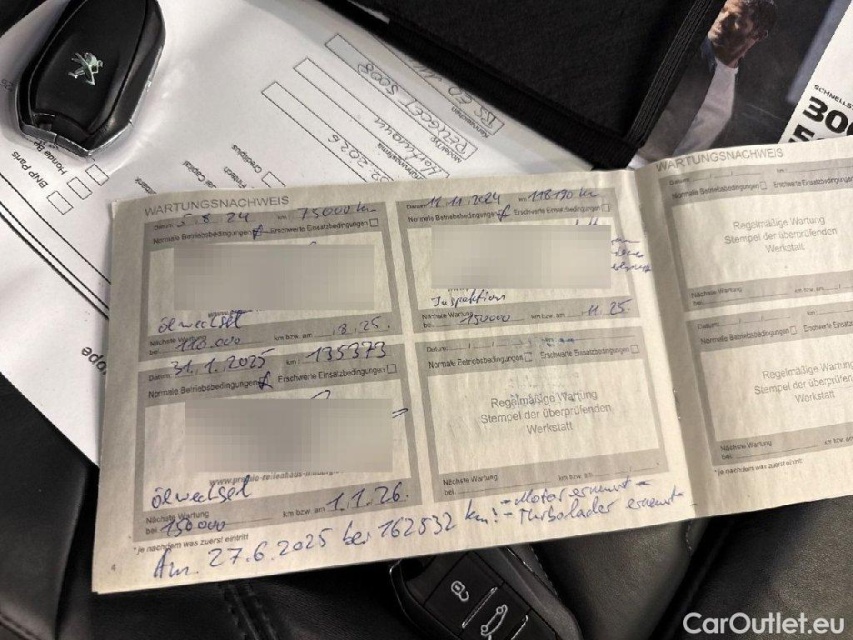 PEUGEOT 5008
Kennzeichen
Cetelem
Fintech
Creditplus
BNP Paris
Honda B
SCHNELLS
300
WARTUNGSNACHWEIS
Datum: 5.8.24 km 75000 km
Normale Betriebsbedingungen Erschwerte Einsatzbedingungen
ölwechsel
Nächste Wartung
bei 118.000 km bzw. am .8.25.
Datum: 31.1.2025 km 135373
Normale Betriebsbedingungen Erschwerte Einsatzbedingungen
ölwechsel
Nächste Wartung
bei 150000 km bzw. am 1.1.26.
*je nachdem was zuerst eintritt
Datum: 11.11.2024 km 118190 km
Normale Betriebsbedingungen Erschwerte Einsatzbedingungen
Inspektion
Nächste Wartung
bei 150000 km bzw. am 11.25.
Datum:
Normale Betriebsbedingungen Erschwerte Einsatzbedingungen
Regelmäßige Wartung
Stempel der überprüfenden
Werkstatt
Nächste Wartung
bei km bzw. am
Am. 27.6.2025 bei 162532 km! - Motor erneuert -
- Turbolader erneuert
4
WARTUNGSNACHWEIS
Normale Betriebsbedingungen Erschwerte Einsatzbed
Regelmäßige Wartung
Stempel der überprüfenden
Werkstatt
Nächste Wartung
bei km bzw. am
Datum:
Normale Betriebsbedingungen Erschwerte Eins
Regelmäßige Wartung
Stempel der überprüfenden
Werkstatt
Nächste Wartung
bei km bzw.
*je nachdem was zuerst eintritt
CarOutlet.eu